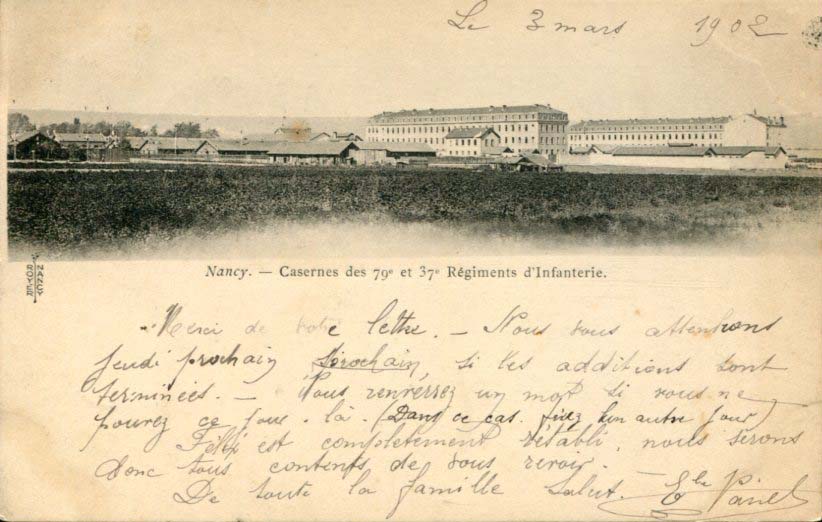 Le 3 mars 1902
Nancy. — Casernes des 79e et 37e Régiments d'Infanterie.
NANCY
ROYER
Merci de votre lettre. — Nous vous attendrons
jeudi prochain prochain, si les additions sont
terminées. — Vous renverrez un mot si vous ne
pouvez ce jour-là. (Dans ce cas. fixez un autre jour)
Félix est complètement rétabli, nous serons
donc tous contents de vous revoir.
De toute la famille Salut.